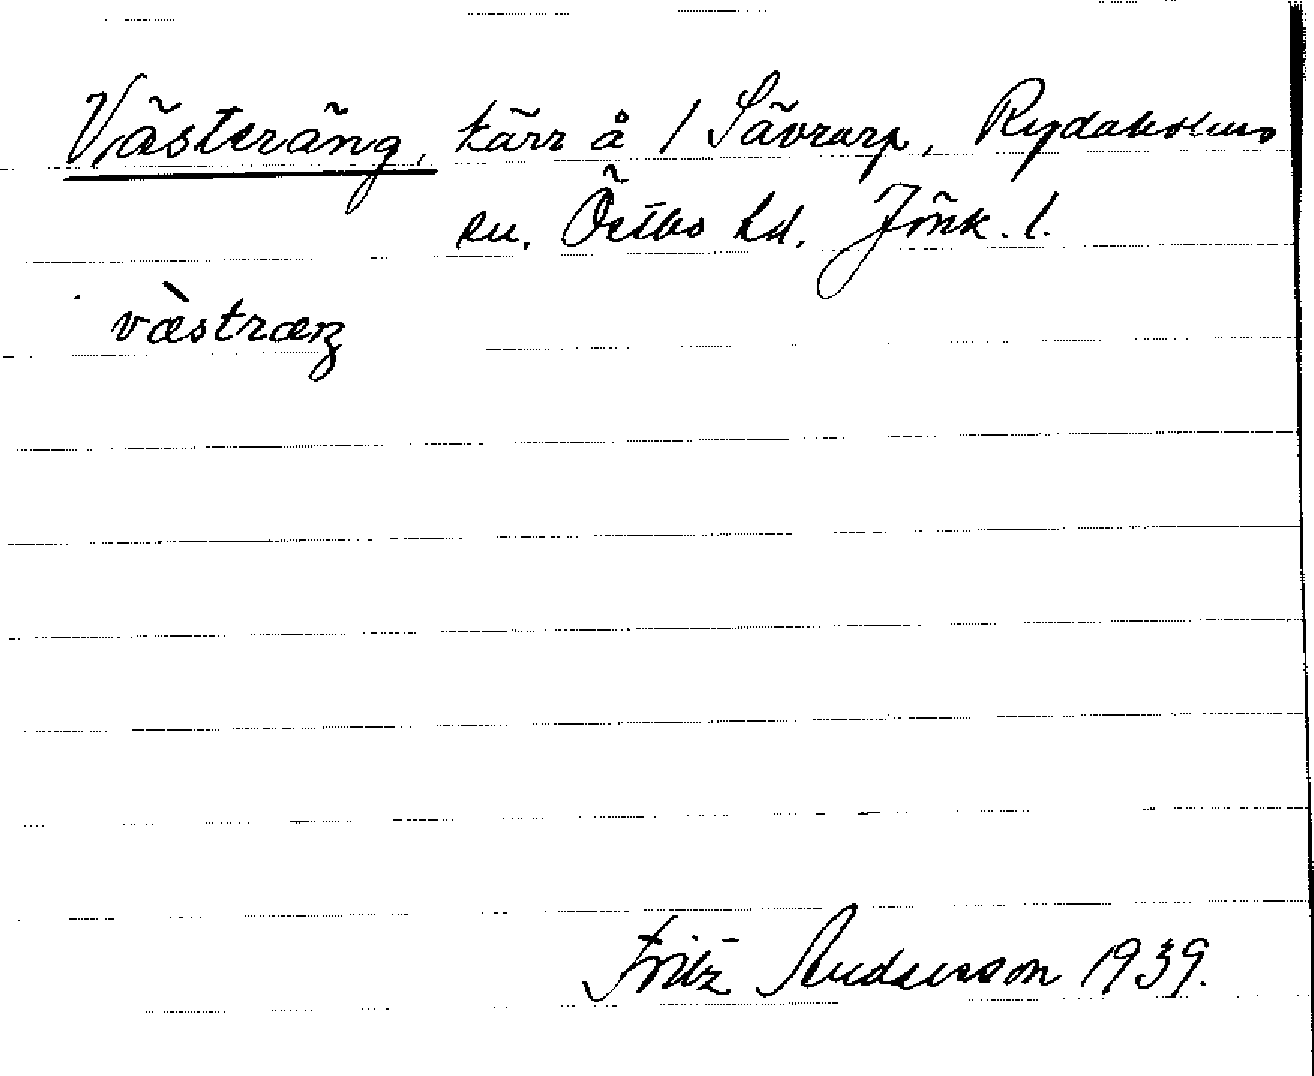 Västeräng, kärr å / Sävrarp, Rydaholms
sn. Östbo hd. Jönk. l.
vàstræŋ
Fritz Andersson 1939.